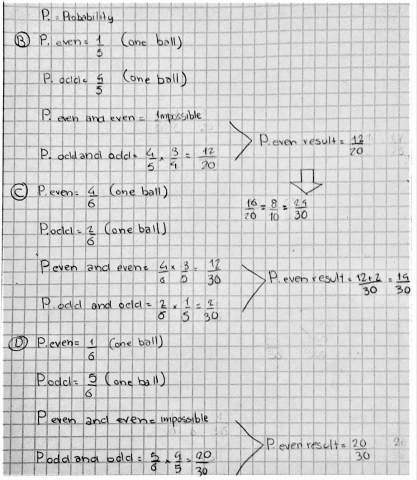 P. = Probability
B P. even = 1/5 (one ball)
P. odd = 4/5 (one ball)
P. even and even = Impossible
P. odd and odd = 4/5 x 3/4 = 12/20
P. even result = 12/20
C P. even = 4/6 (one ball)
16/20 = 8/10 = 24/30
P. odd = 2/6 (one ball)
P even and even = 4/6 x 3/5 = 12/30
P. even result = 12+2/30 = 14/30
P. odd and odd = 2/6 x 1/5 = 2/30
D P. even = 1/6 (one ball)
P odd = 5/6 (one ball)
P even and even = impossible
P odd and odd = 5/6 x 4/5 = 20/30
P. even result = 20/30